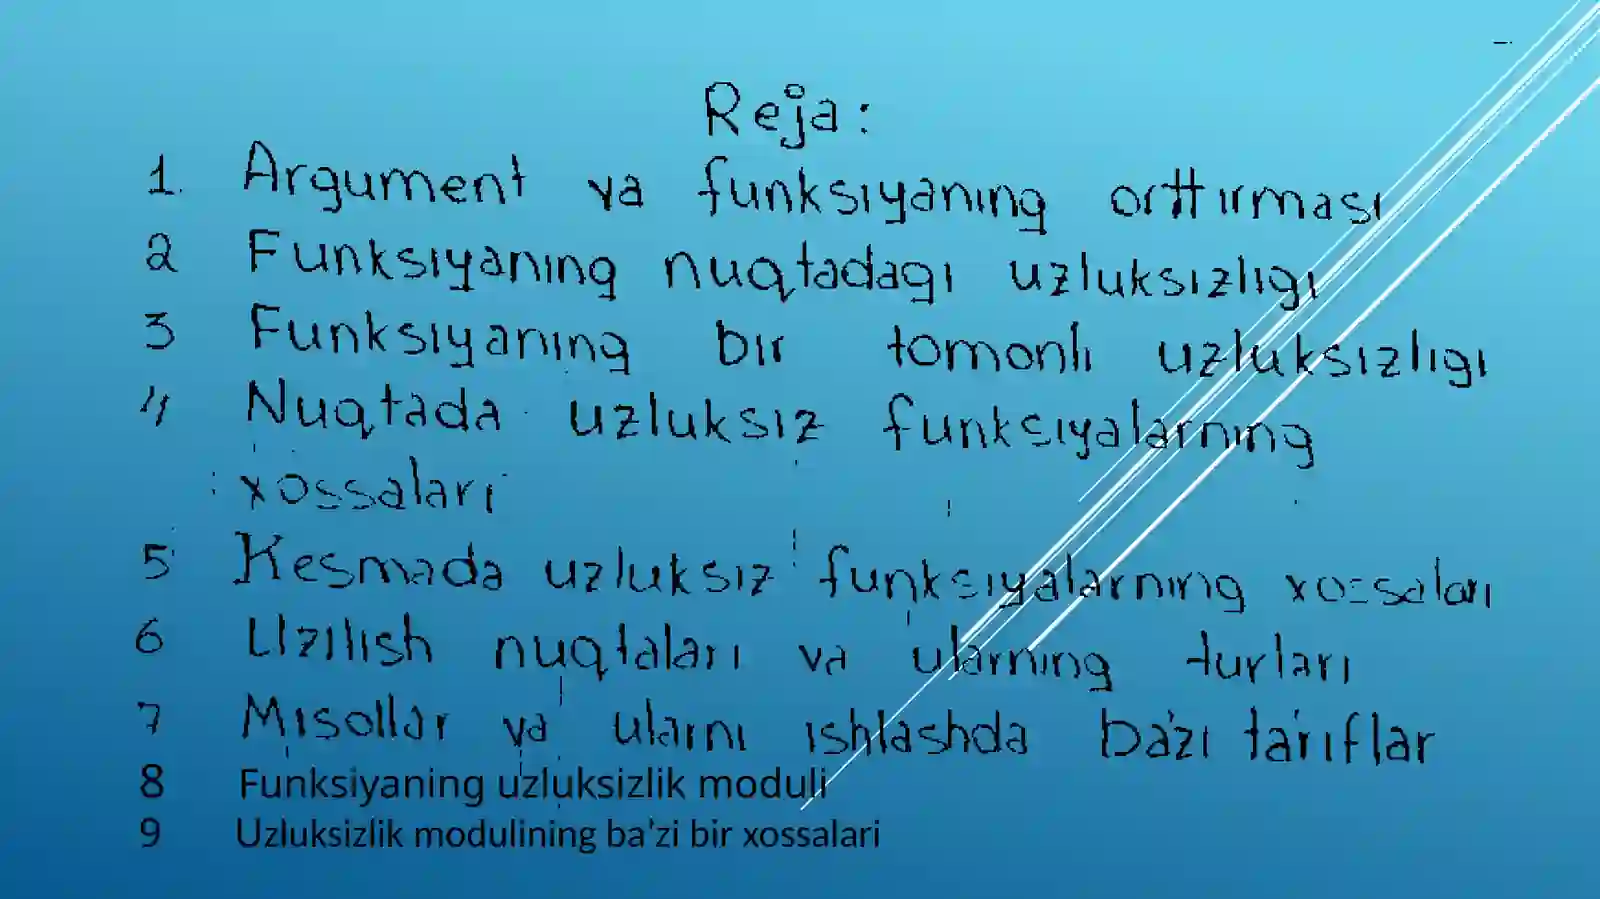 Reja:
1. Argument va funksiyaning orttirmasi
2 Funksiyaning nuqtadagi uzluksizligi
3 Funksiyaning bir tomonli uzluksizligi
4 Nuqtada uzluksiz funksiyalarning
xossalari
5 Kesmada uzluksiz funksiyalarning xossalari
6 Uzilish nuqtalari va ularning turlari
7 Misollar va ularni ishlashda ba'zi ta'riflar
8 Funksiyaning uzluksizlik moduli
9 Uzluksizlik modulining ba'zi bir xossalari